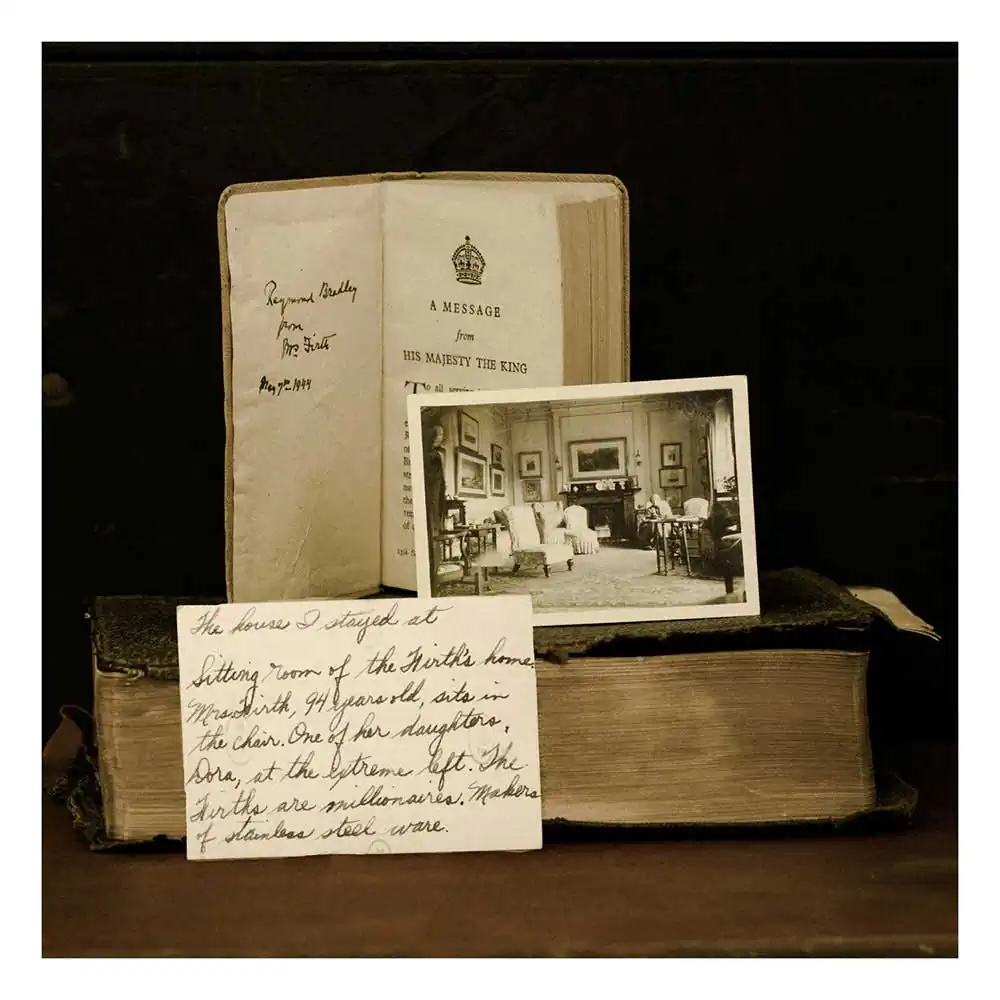 Raymond Bradley
from
Mrs. Firth
May 7th 1944
A MESSAGE
from
HIS MAJESTY THE KING
To all serving
The house I stayed at
Sitting room of the Firth's home.
Mrs. Firth, 94 years old, sits in
the chair. One of her daughters,
Dora, at the extreme left. The
Firths are millionaires. Makers
of stainless steel ware.